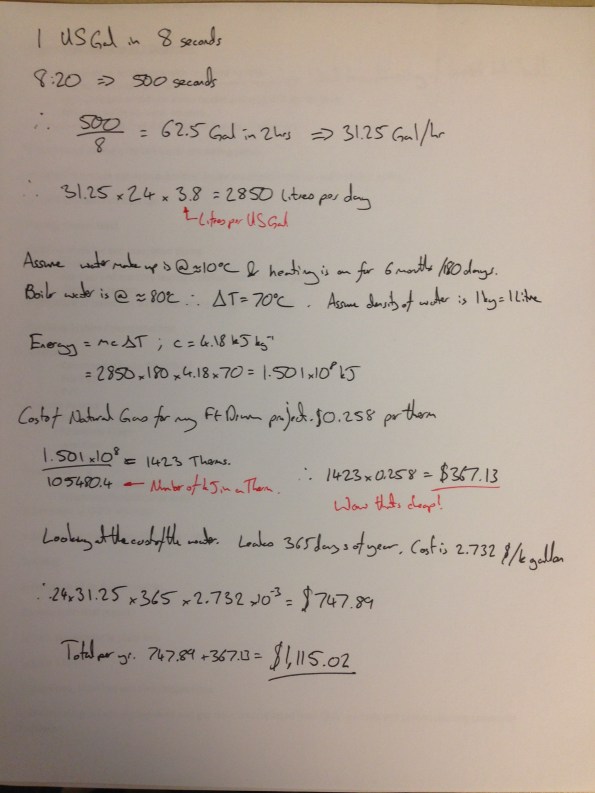 1 US Gal in 8 seconds
8:20 => 500 seconds
∴ 500/8 = 62.5 Gal in 2hrs => 31.25 Gal/hr
∴ 31.25 × 24 × 3.8 = 2850 Litres per day
Litres per US Gal
Assume water make up is @ ≈ 10°C & heating is on for 6 months /180 days.
Boiler water is @ ≈ 80°C ∴ ΔT = 70°C . Assume density of water is 1kg = 1 Litre
Energy = mcΔT ; c = 4.18 kJ kg⁻¹
= 2850 × 180 × 4.18 × 70 = 1.501 × 10⁸ kJ
Cost of Natural Gas for my Ft Drum project. $0.258 per therm
1.501 × 10⁸ / 105480.4 = 1423 Therms. ∴ 1423 × 0.258 = $367.13
Number of kJ in a Therm. Wow that's cheap!
Looking at the cost of the water. Leaks 365 days of year. Cost is 2.732 $/k gallon
∴ 24 × 31.25 × 365 × 2.732 × 10⁻³ = $747.89
Total per yr. 747.89 + 367.13 = $1,115.02